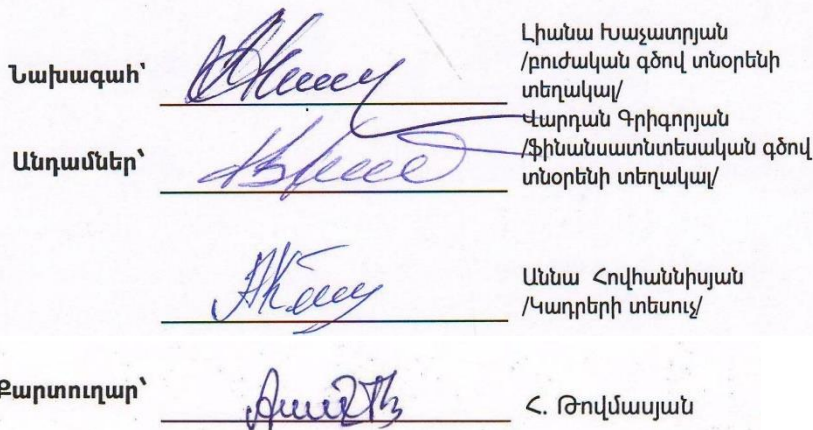 Նախագահ՝
Լիանա Խաչատրյան
/բուժական գծով տնօրենի
տեղակալ/
Անդամներ՝
Վարդան Գրիգորյան
/ֆինանսատնտեսական գծով
տնօրենի տեղակալ/
Աննա Հովհաննիսյան
/Կադրերի տեսուչ/
Քարտուղար՝
Հ. Թովմասյան